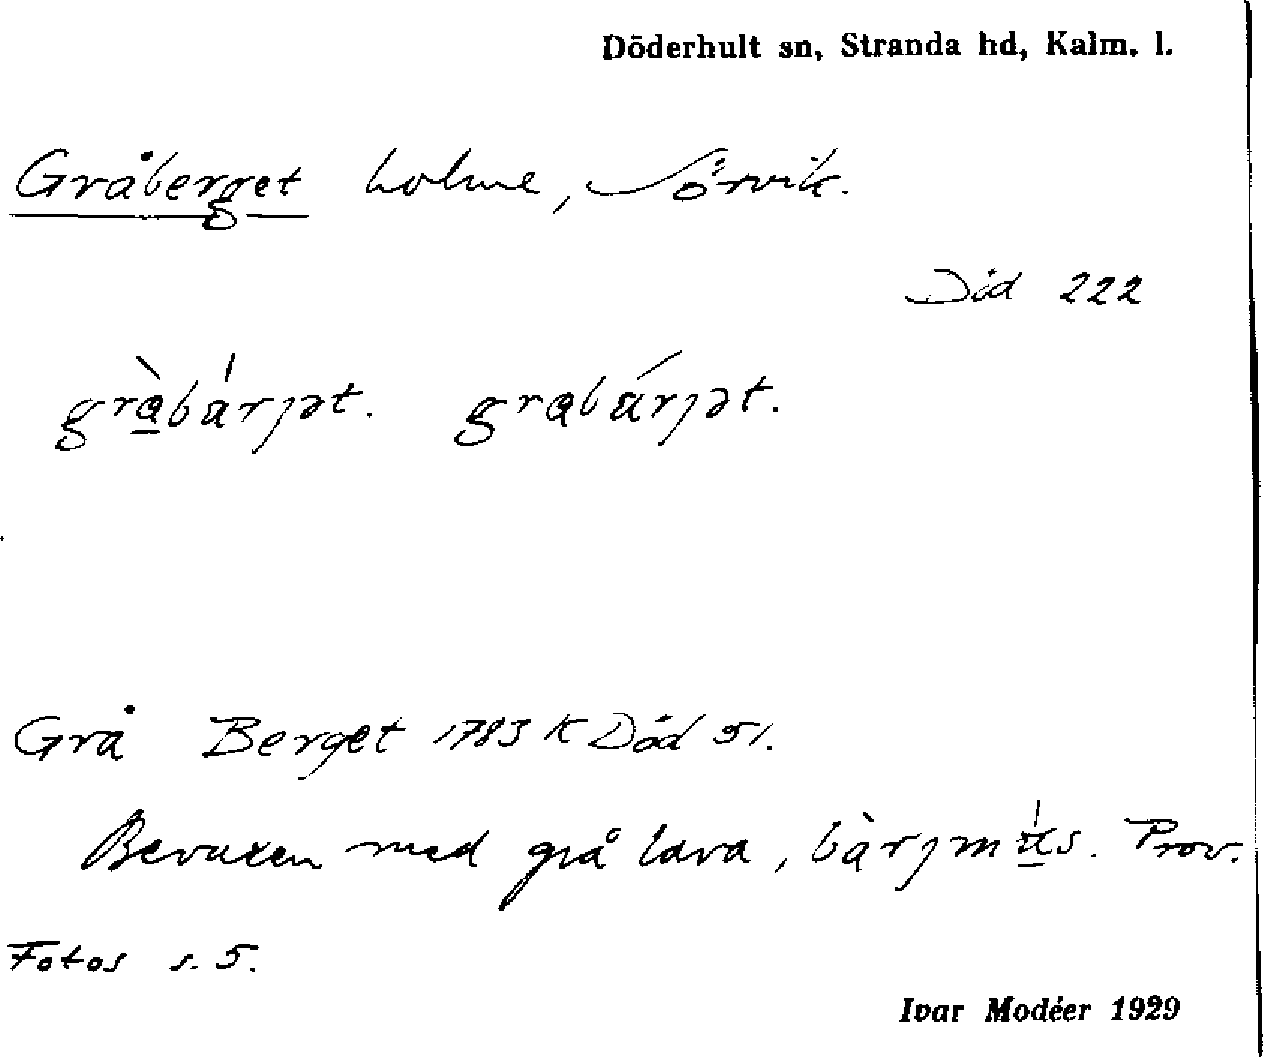 Döderhult sn, Stranda hd, Kalm. l.
Gråberget holme, Sörvik.
Död 222
gràbárjət. grabárjət.
Grå Berget 1783 K Död 51.
Bevuxen med grå lava, bàrjmás. Prov.
Fotos s. 5.
Ivar Modéer 1929